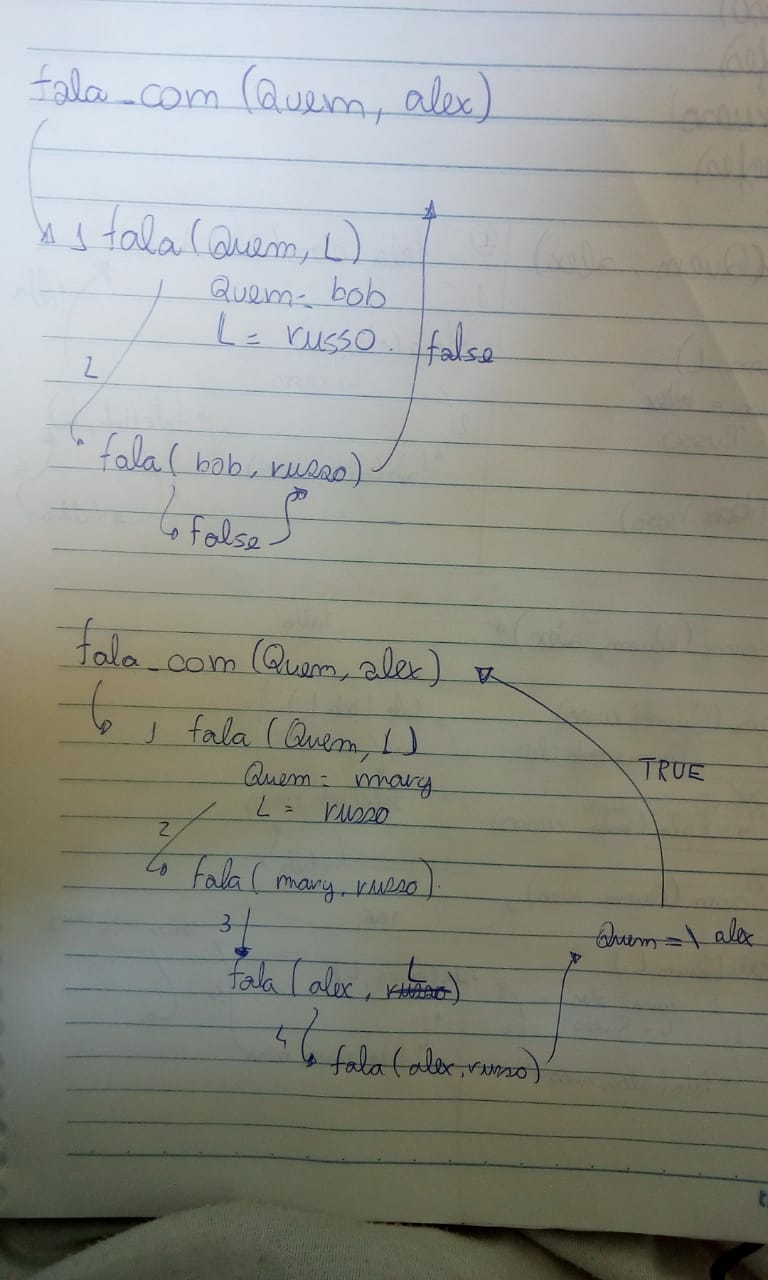 fala_com (Quem, alex)
1 fala (Quem, L)
Quem = bob
L = russo.
false
2
fala ( bob, russo)
false
fala_com (Quem, alex)
1 fala (Quem, L)
TRUE
Quem = mary
L = russo
2
fala ( mary, russo).
3
Quem =\ alex
L
fala ( alex, russo)
4
fala ( alex, russo)